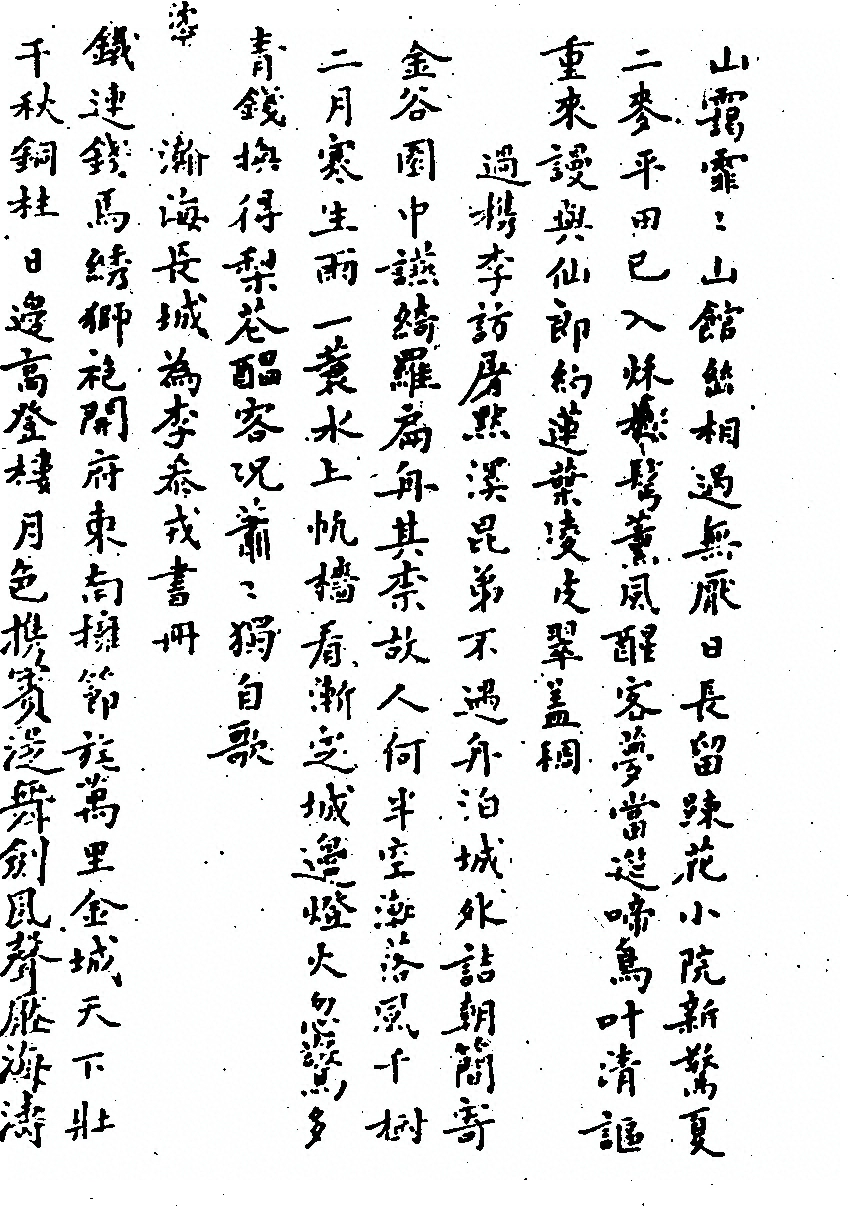 山靄霏〻山館幽相過無厭日長留踈花小院新驚夏
二麥平田已入秋鬆髩薰風醒客夢當筵啼鳥叶清謳
重來謾與仙郎約蓮葉凌虎翠盖稠
過檇李訪屠㸃溪昆弟不遇舟泊城外詰朝簡寄
金谷園中讌綺羅扁舟其柰故人何半空潮落風千樹
二月寒生雨一蓑水上帆檣看漸定城邊燈火忽驚多
青錢撫得梨花醞客況蕭〻獨自歌
瀚海長城為李叅戎書冊
鐵連錢馬綉獅袍開府東南擁節旄萬里金城天下壯
千秋銅柱日邊高登樓月色携賓泛舞劍風聲壓海濤